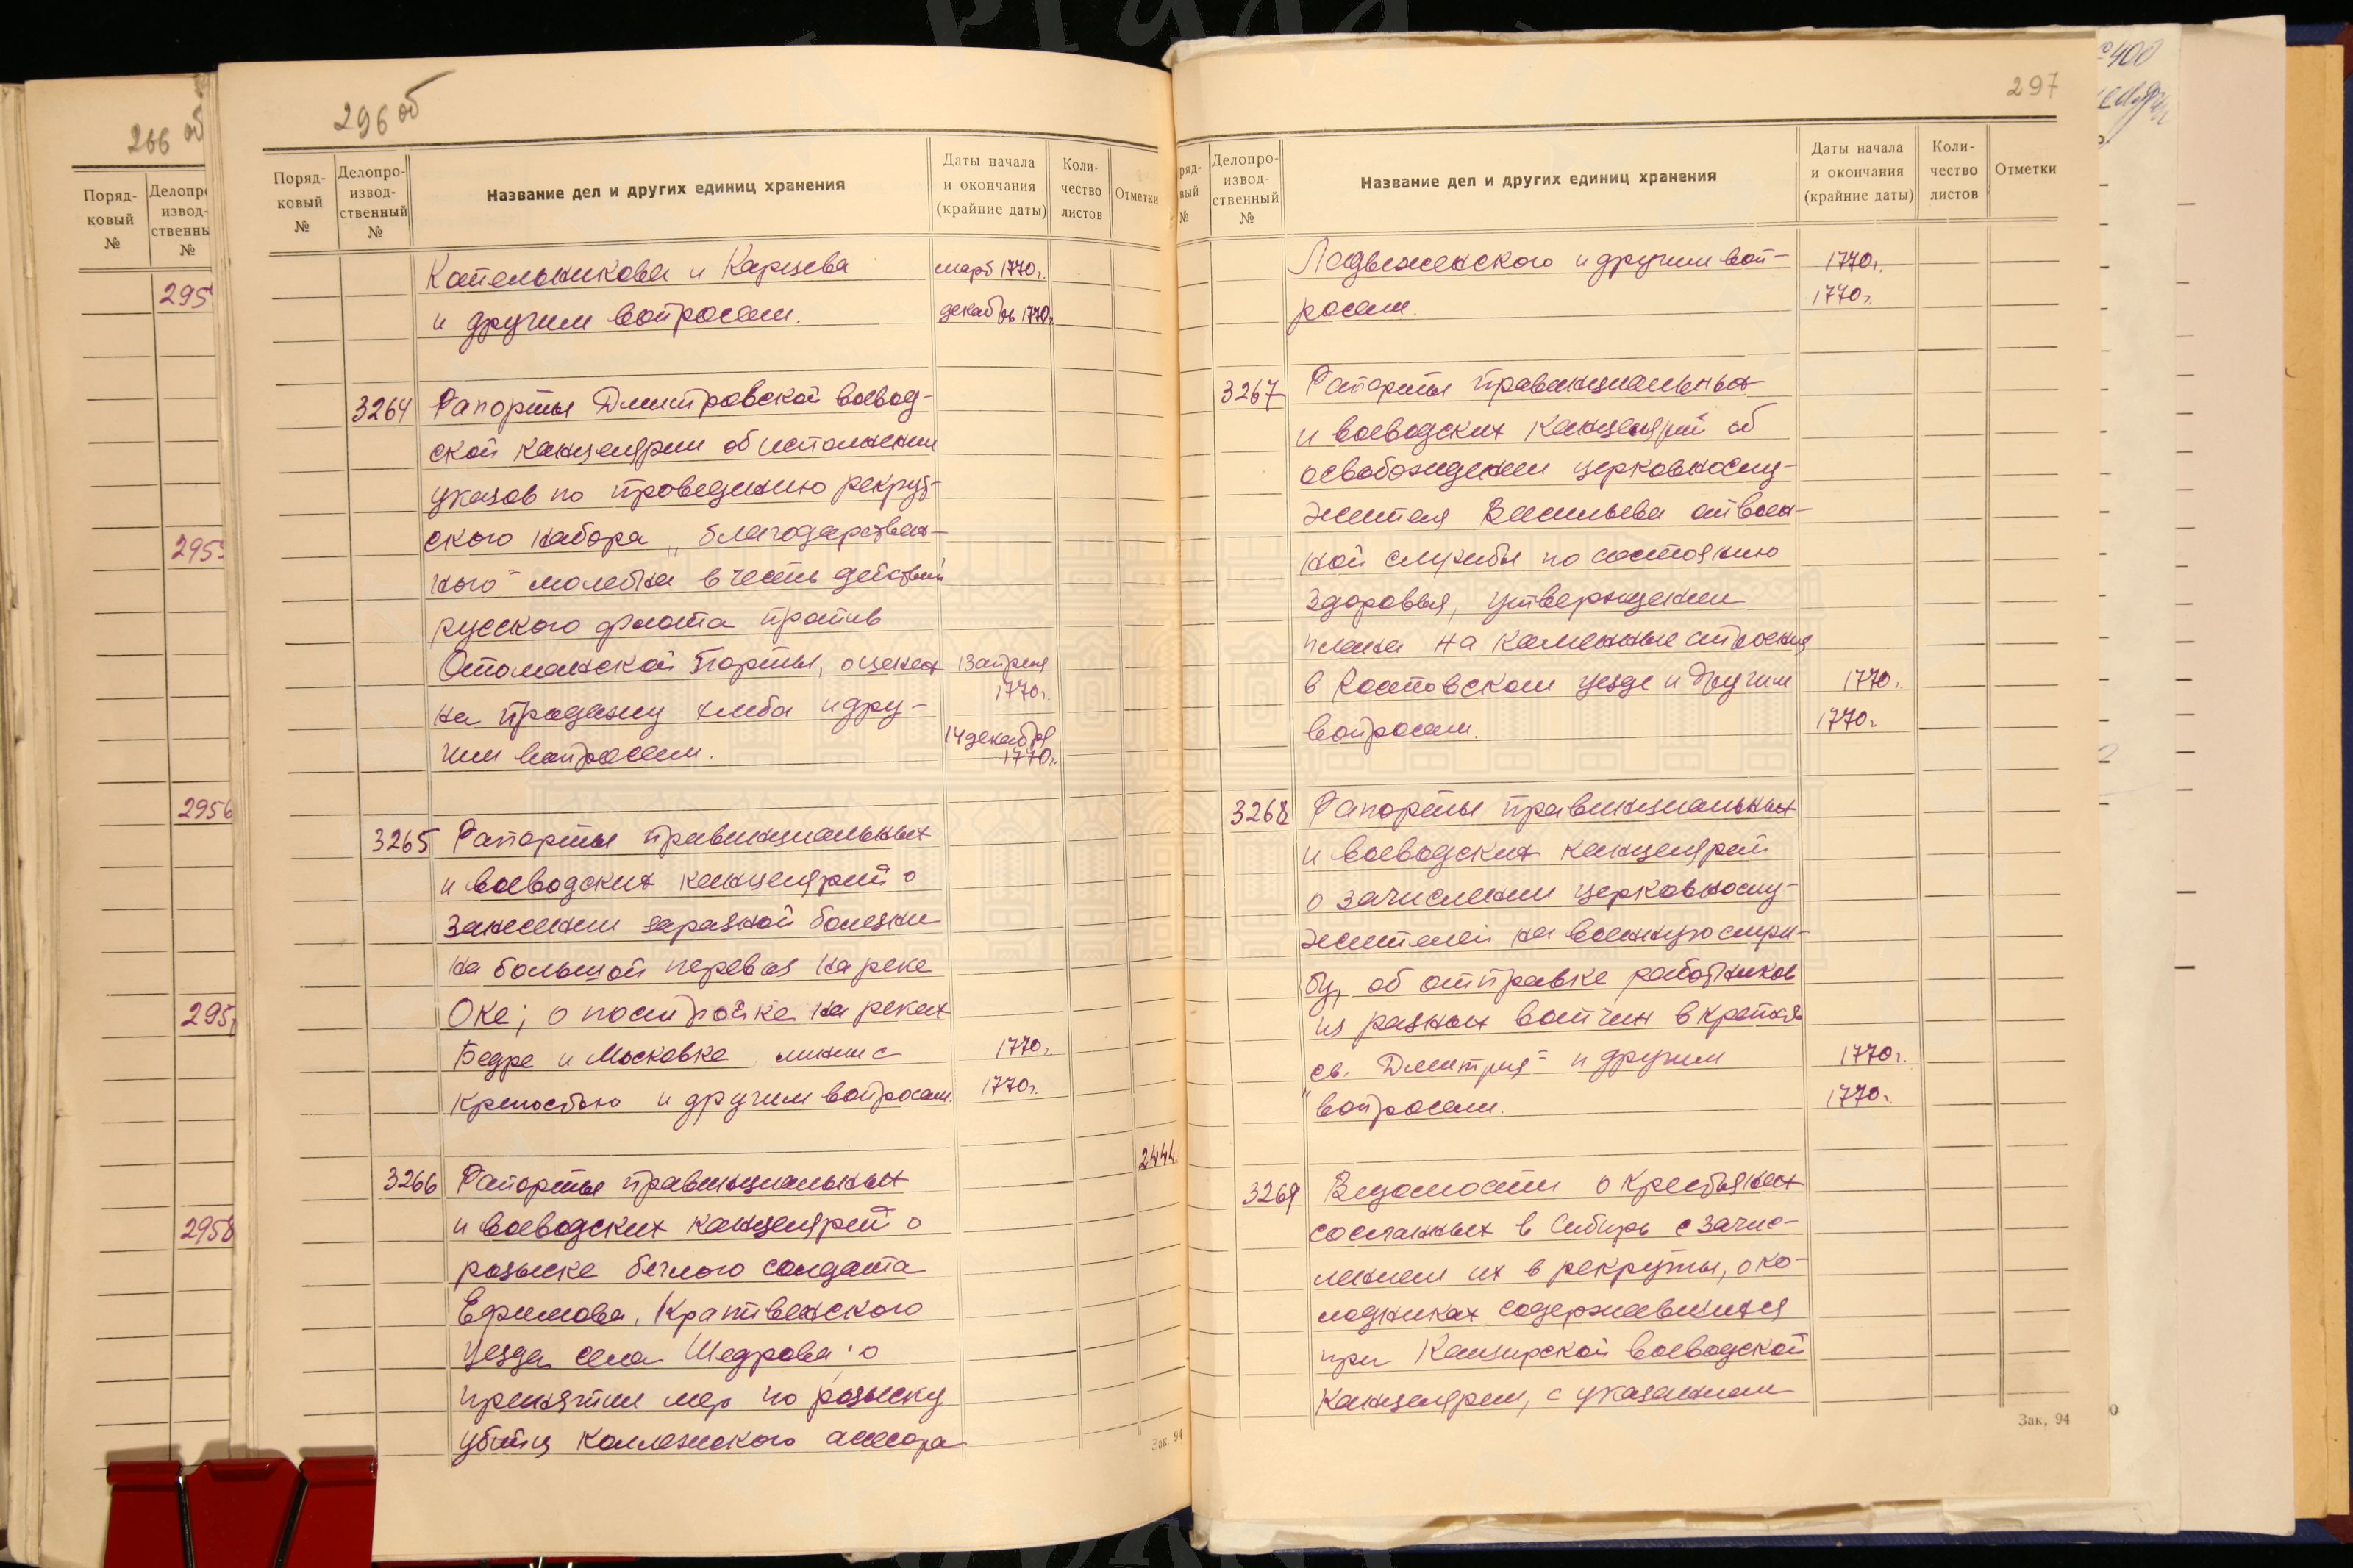 266 об
Поряд-
ковый
№
Делопро
извод-
ственны
№
295
295
2956
295
2958
296 об
Поряд-
ковый
№
Делопро-
извод-
ственный
№
Название дел и других единиц хранения
Даты начала
и окончания
(крайние даты)
Коли-
чество
листов
Отметки
Котельникова и Карцева март 1770г.
и другим вопросам. декабрь 1770г.
3264 Рапорты Дмитровской воевод-
ской канцелярии об исполнении
указов по проведению рекрут-
ского набора „благодарствен-
ного" молебна в честь действий
русского флота против
Отоманской Порты, о ценах 13 апреля
1770г.
на продажу хлеба и дру-
14 декабря
гим вопросам. 1770г.
3265 Рапорты провинциальных
и воеводских канцелярий о
занесении заразной болезни
на большой перевоз на реке
Оке; о постройке на реках
Бедре и Московке линии с 1770г.
крепостью и другим вопросам. 1770г.
2444.
3266 Рапорты провинциальных
и воеводских канцелярий о
розыске беглого солдата
Ефимова, Крапивенского
уезда села Щедрова; о
принятии мер по розыску
убийц коллежского асессора
Зак. 94
297
ряд-
вый
№
Делопро-
извод-
ственный
№
Название дел и других единиц хранения
Даты начала
и окончания
(крайние даты)
Коли-
чество
листов
Отметки
Ладыженского и другим воп- 1770г.
росам. 1770г.
3267 Рапорты провинциальных
и воеводских канцелярий об
освобождении церковнослу-
жителя Васильева от воен-
ной службы по состоянию
здоровья, утверждении
плана на каменные строения
в Ростовском уезде и другим 1770г.
вопросам. 1770г.
3268 Рапорты провинциальных
и воеводских канцелярий
о зачислении церковнослу-
жителей на военную служ-
бу, об отправке работников
из разных вотчин в крепость
„св. Дмитрия" и другим 1770г.
вопросам. 1770г.
3269 Ведомости о крестьянах
сосланных в Сибирь с зачис-
лением их в рекруты, о ко-
лодниках содержавшихся
при Каширской воеводской
канцелярии, с указанием
Зак. 94